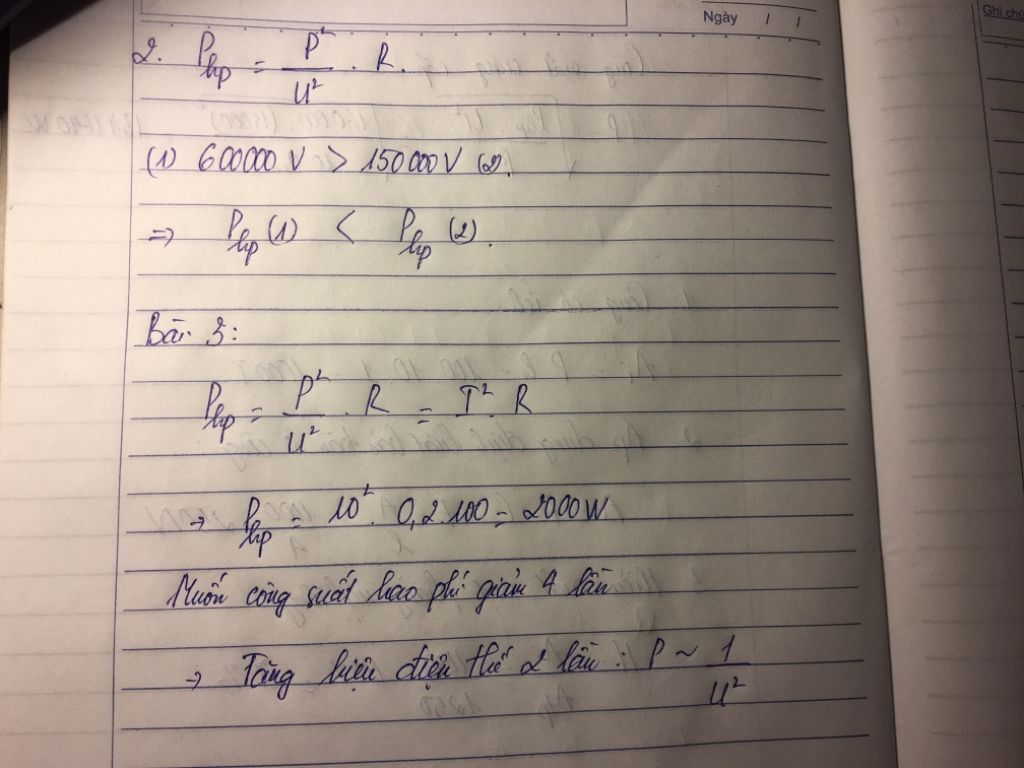 Ngày / /
Ghi chú
2. P_hp = P²/U² . R.
(1) 600000 V > 150000V (2).
=> P_hp (1) < P_hp (2).
Bài 3:
P_hp = P²/U² . R = I² . R
→ P_hp = 10² . 0,2.100 = 2000W
Muốn công suất hao phí giảm 4 lần
→ Tăng hiệu điện thế 2 lần : P ~ 1/U²